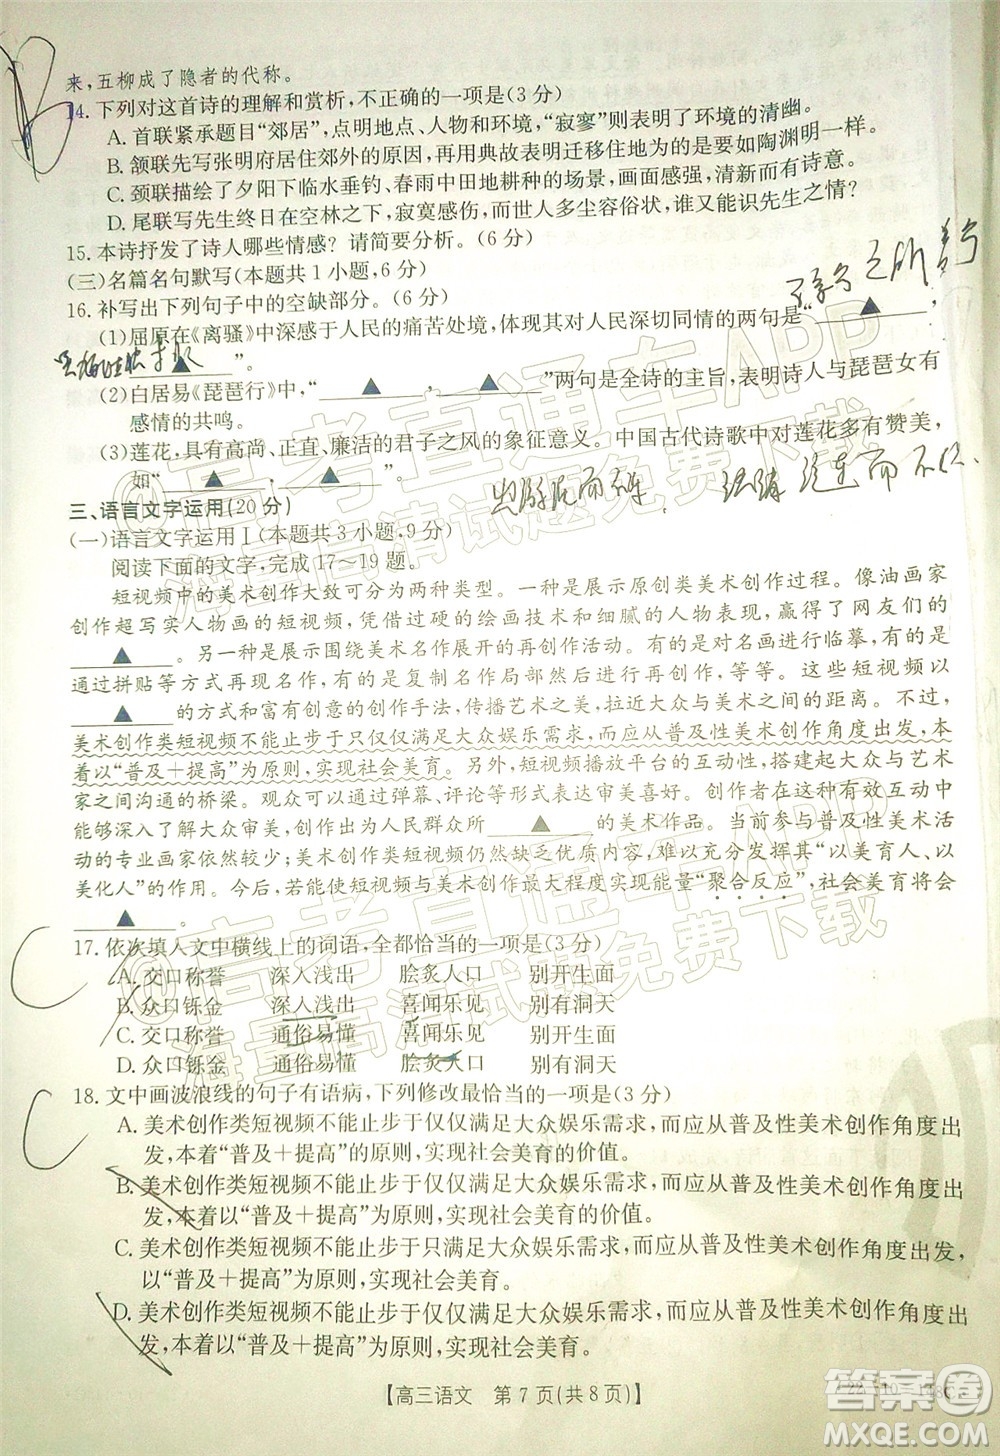 来,五柳成了隐者的代称。
14.下列对这首诗的理解和赏析,不正确的一项是(3分)
A.首联紧承题目“郊居”,点明地点、人物和环境,“寂寥”则表明了环境的清幽。
B.颔联先写张明府居住郊外的原因,再用典故表明移居此地的决心要如陶渊明一样。
C.颈联描绘了夕阳下临水垂钓、春雨中田地耕种的画面,画面感强,清新而有诗意。
D.尾联写先生终日在空林之下,寂寞感伤,世间多尘容俗状,谁又能识先生之意?
15.本诗抒发了诗人哪些情感?请简要分析。(6分)
(三)名篇名句默写(本题共1小题,6分)
16.补写出下列句子中的空缺部分。(6分)
(1)屈原在《离骚》中深感于人民的痛苦处境,体现其对人民深切同情的两句是“ ▲ ,
▲ ”。
(2)白居易《琵琶行》中,“ ▲ , ▲ ”两句是全诗的主旨,表明诗人与琵琶女有
感情的共鸣。
(3)莲花,具有高尚、正直、廉洁的君子之风的象征意义。中国古代诗歌中对莲花多有赞美,
如“ ▲ , ▲ ”。
出淤泥而不染 濯清涟而不妖
三、语言文字运用(20分)
(一)语言文字运用Ⅰ(本题共3小题,9分)
阅读下面的文字,完成17~19题。
短视频中的美术创作大致可分为两种类型。一种是展示原创类美术创作过程。像油画家
创作超写实人物画的短视频,凭借过硬的绘画技术和细腻的人物表现,赢得了网友们的
▲ 。另一种是展示围绕美术名作展开的再创作活动。有的是对名画进行临摹,有的是
通过拼贴等方式再现名作,有的是选择名作局部然后进行再创作,等等。这类短视频采用
▲ 的方式和富有创意的创作手法,传播艺术之美,拉近大众与美术之间的距离。不过,
美术创作类短视频不能止步于只仅仅满足大众娱乐需求,而应从普及性美术创作角度出发,本
着以“普及+提高”为原则,实现社会美育。另外,短视频播放平台的互动性,搭建起大众与艺术
家之间沟通的桥梁。观众可以通过弹幕、评论等形式表达审美喜好。创作者在有效互动中
能够深入了解大众审美,创作出为人民群众所 ▲ 的美术作品。当前参与普及性美术活
动的专业画家依然较少;美术创作类短视频仍然缺乏优质内容,难以充分发挥“以美育人、以
美化人”的作用。今后,若能让短视频与美术创作在更多层面实现能量“聚合反应”,社会美育将会
▲ 。
17.依次填入文中横线上的词语,全都恰当的一项是(3分)
A.交口称誉 深入浅出 脍炙人口 别开生面
B.众口铄金 深入浅出 喜闻乐见 别有洞天
C.交口称誉 通俗易懂 喜闻乐见 别开生面
D.众口铄金 通俗易懂 脍炙人口 别有洞天
18.文中画波浪线的句子有语病,下列修改最恰当的一项是(3分)
A.美术创作类短视频不能止步于只满足大众娱乐需求,而应从普及性美术创作角度出
发,本着“普及+提高”的原则,实现社会美育的价值。
B.美术创作类短视频不能止步于仅仅满足大众娱乐需求,而应从普及性美术创作角度出
发,本着以“普及+提高”为原则,实现社会美育的价值。
C.美术创作类短视频不能止步于只满足大众娱乐需求,而应从普及性美术创作角度出发,
以“普及+提高”为原则,实现社会美育。
D.美术创作类短视频不能止步于仅仅满足大众娱乐需求,而应从普及性美术创作角度出
发,本着“普及+提高”为原则,实现社会美育。
【高三语文 第7页(共8页)】
B
C
C
@高考直通车APP
海量高清试题免费下载
@高考直通车APP
海量高清试题免费下载
答案圈
MXQE.COM